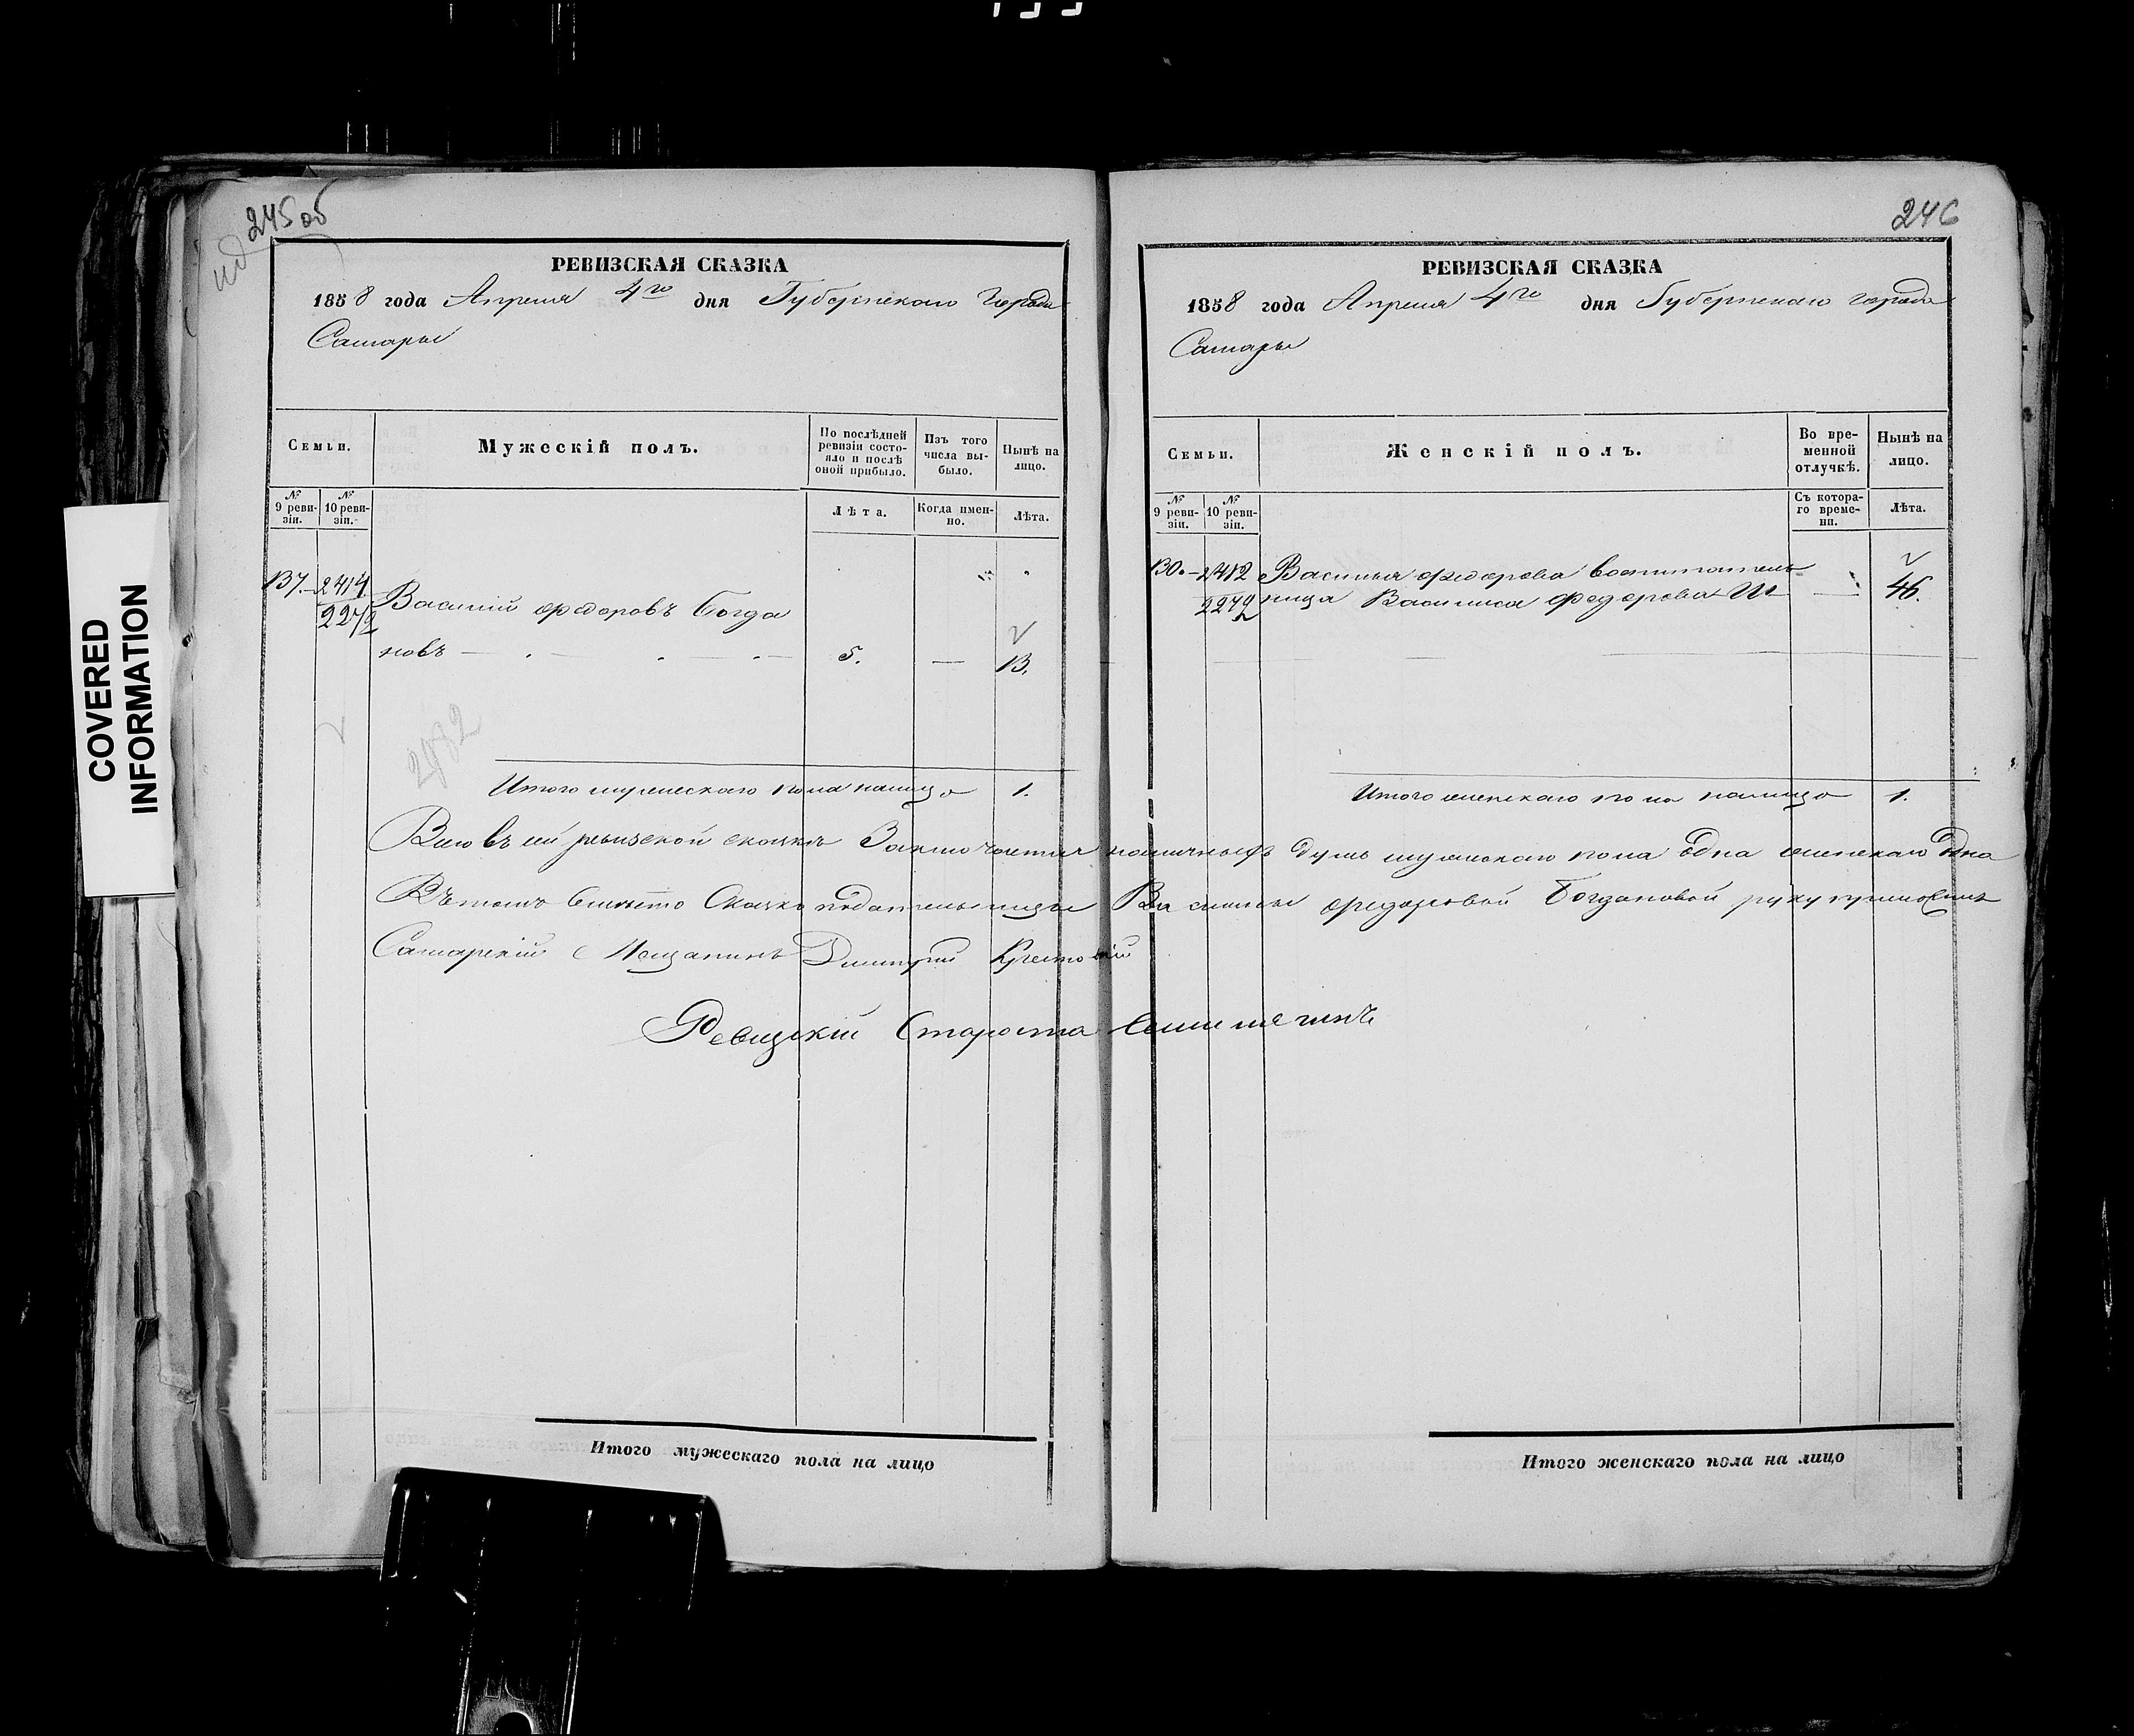 245 об
РЕВИЗСКАЯ СКАЗКА
1858 года Апреля 4го дня Губернскаго города
Самары
Семьи.
Мужескій полъ.
По послѣдней ревизіи состояло и послѣ оной прибыло.
Изъ того числа выбыло.
Нынѣ на лицо.
№ 9 ревизіи.
№ 10 ревизіи.
Лѣта.
Когда именно.
Лѣта.
137.
2414
2272
Василій Федоровъ Богда
новъ
5.
—
13.
2482
Итого мужескаго пола налицо 1.
246
РЕВИЗСКАЯ СКАЗКА
1858 года Апреля 4го дня Губернскаго города
Самары
Семьи.
Женскій полъ.
Во временной отлучкѣ.
Нынѣ на лицо.
№ 9 ревизіи.
№ 10 ревизіи.
Съ котораго времени.
Лѣта.
2412
2272
Василья Федорова воспитатель
ница Василиса Федорова
—
46.
Итого женскаго пола налицо 1.
Всего въ сей ревизской сказке Заключается наличныхъ душъ мужескаго пола одна женскаго одна
Въ томъ вместо Сказко подательницы Василисы Федоровой Богдановой руку приложилъ
Самарскій Мещанинъ Дмитрий
Ревизскій Староста
Итого мужескаго пола на лицо
Итого женскаго пола на лицо
COVERED
INFORMATION